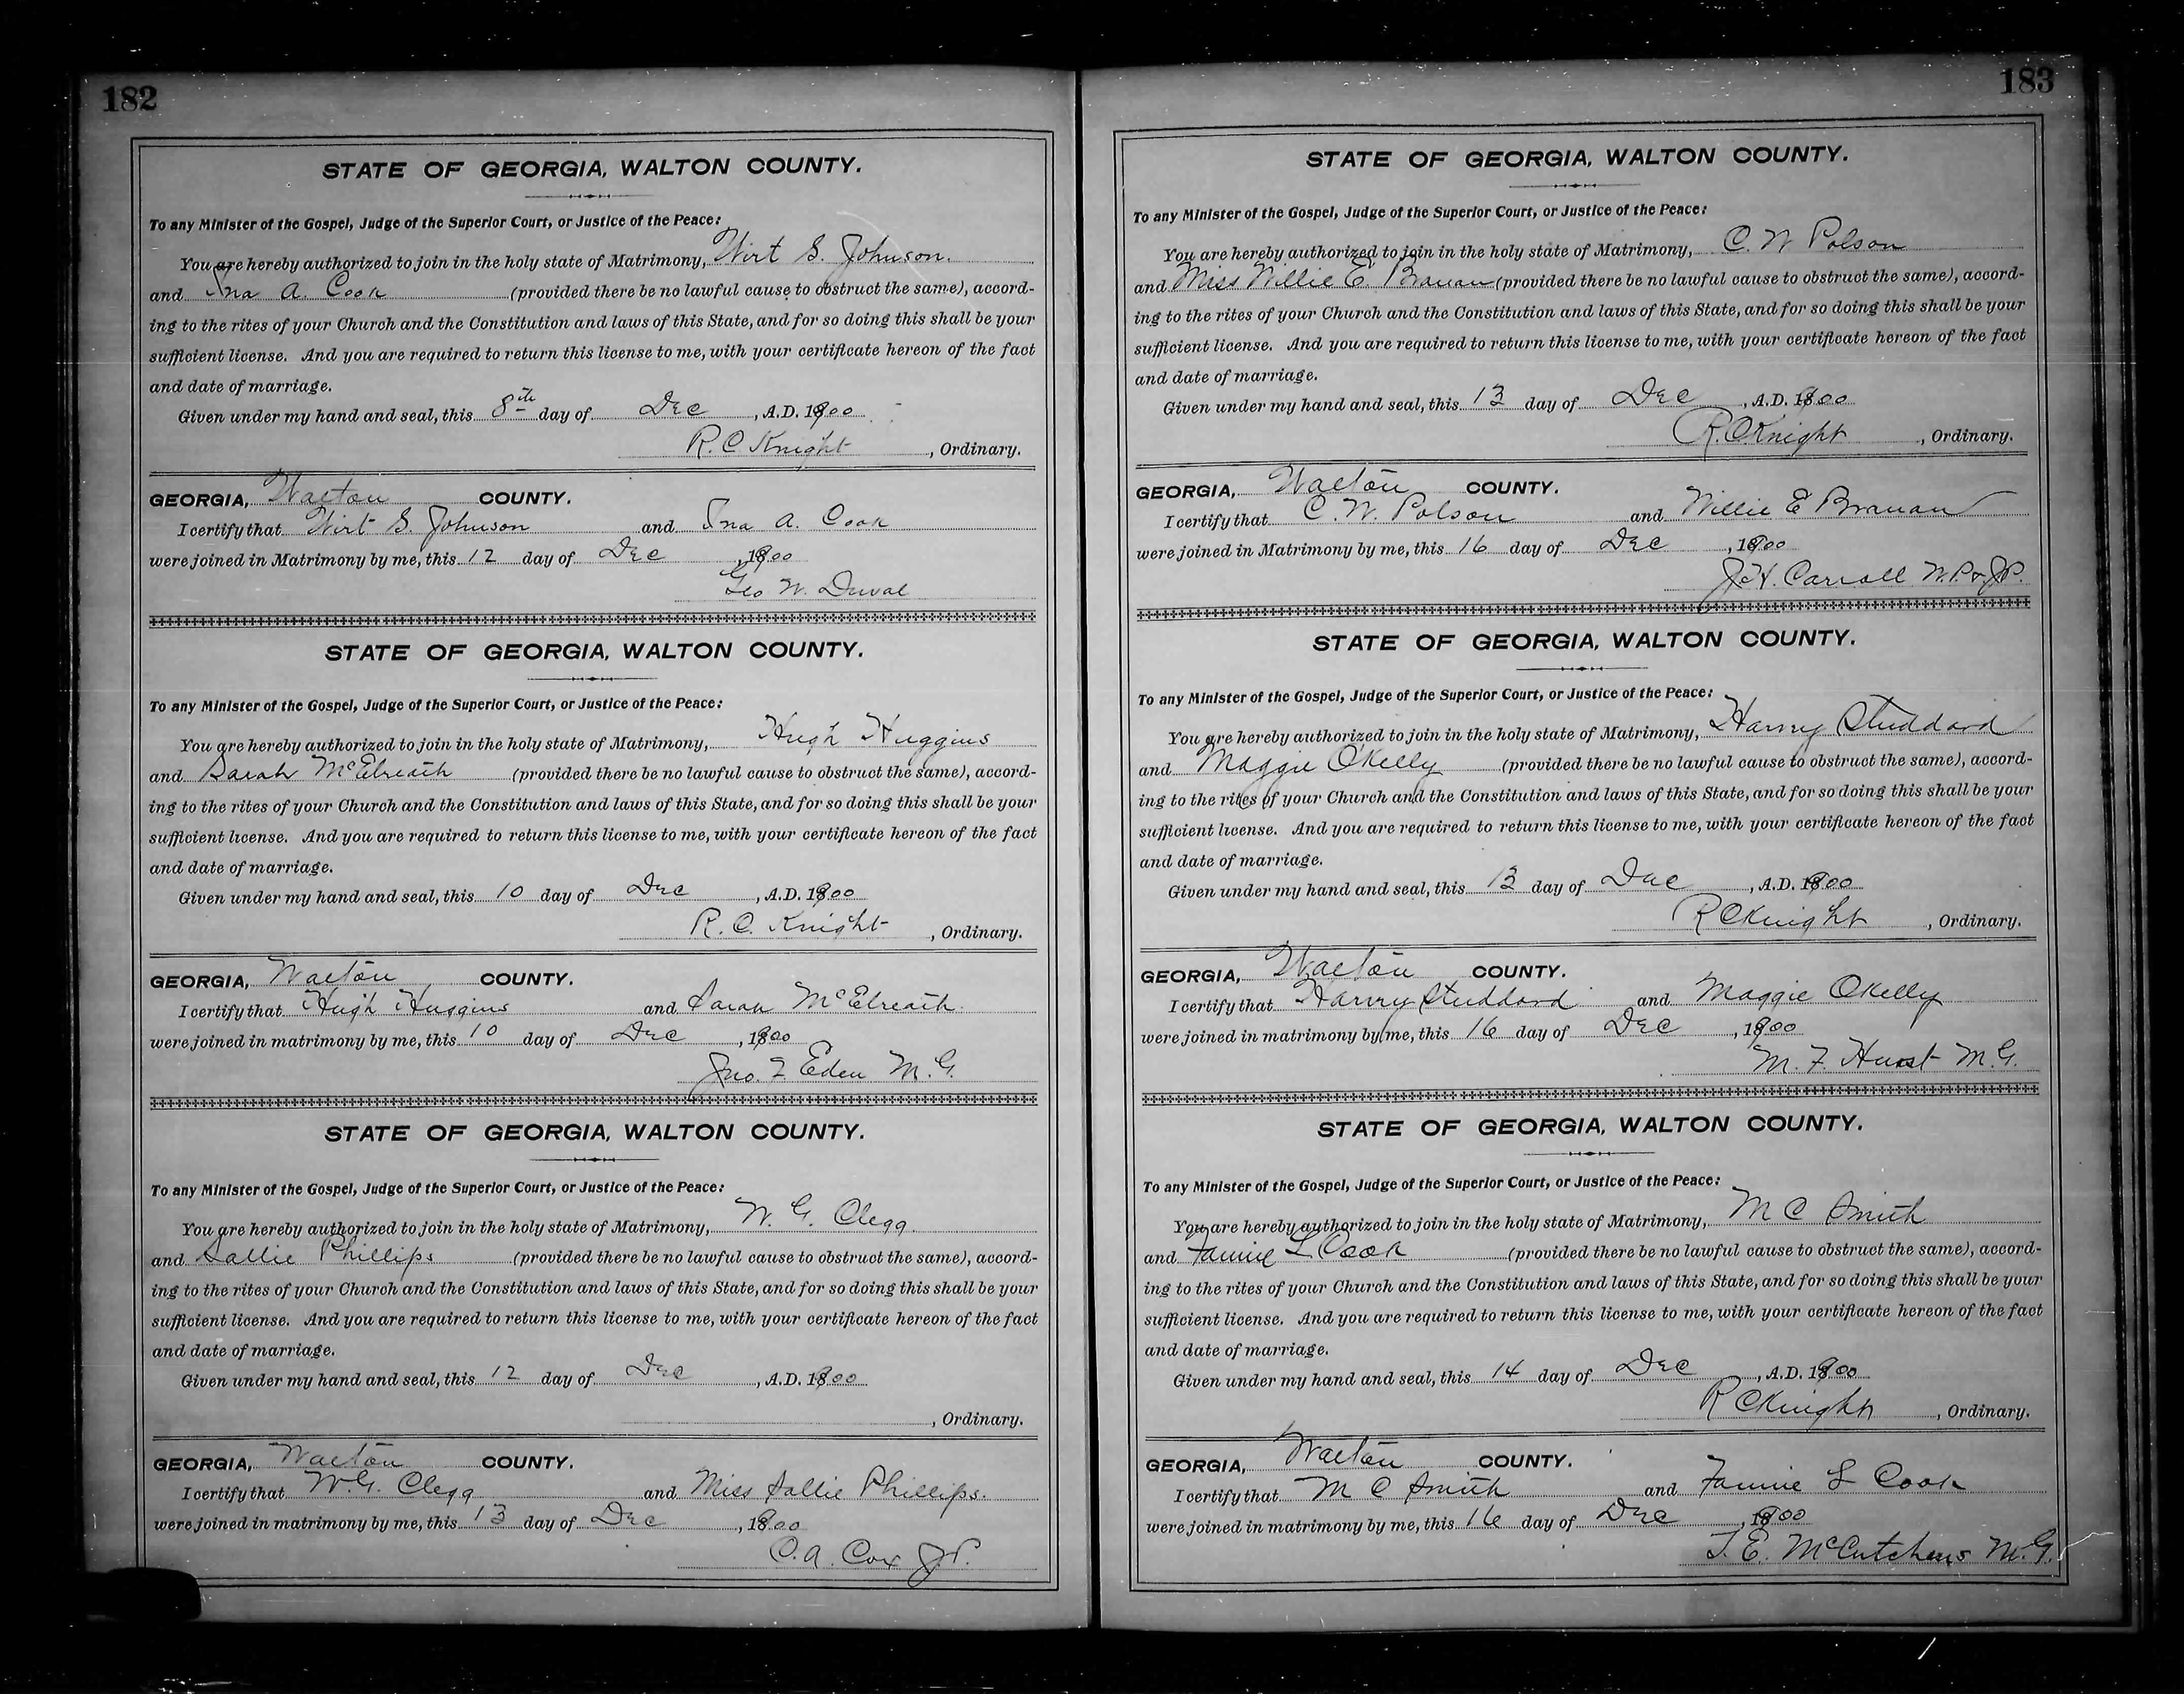 182
STATE OF GEORGIA, WALTON COUNTY.
To any Minister of the Gospel, Judge of the Superior Court, or Justice of the Peace:
You are hereby authorized to join in the holy state of Matrimony, Wirt S. Johnson.
and Ina A. Cook (provided there be no lawful cause to obstruct the same), accord-
ing to the rites of your Church and the Constitution and laws of this State, and for so doing this shall be your
sufficient license. And you are required to return this license to me, with your certificate hereon of the fact
and date of marriage.
Given under my hand and seal, this 8th day of Dec, A.D. 1900
R. C Knight, Ordinary.
GEORGIA, Walton COUNTY.
I certify that Wirt S. Johnson and Ina A. Cook
were joined in Matrimony by me, this 12 day of Dec, 1900
Geo W. Duval
STATE OF GEORGIA, WALTON COUNTY.
To any Minister of the Gospel, Judge of the Superior Court, or Justice of the Peace:
You are hereby authorized to join in the holy state of Matrimony, Hugh Huggins
and Sarah McElreath (provided there be no lawful cause to obstruct the same), accord-
ing to the rites of your Church and the Constitution and laws of this State, and for so doing this shall be your
sufficient license. And you are required to return this license to me, with your certificate hereon of the fact
and date of marriage.
Given under my hand and seal, this 10 day of Dec, A.D. 1900
R. C. Knight, Ordinary.
GEORGIA, Walton COUNTY.
I certify that Hugh Huggins and Sarah McElreath
were joined in matrimony by me, this 10 day of Dec, 1900
Jno. F Eden M.G.
STATE OF GEORGIA, WALTON COUNTY.
To any Minister of the Gospel, Judge of the Superior Court, or Justice of the Peace:
You are hereby authorized to join in the holy state of Matrimony, W. G. Clegg
and Sallie Phillips (provided there be no lawful cause to obstruct the same), accord-
ing to the rites of your Church and the Constitution and laws of this State, and for so doing this shall be your
sufficient license. And you are required to return this license to me, with your certificate hereon of the fact
and date of marriage.
Given under my hand and seal, this 12 day of Dec, A.D. 1900
, Ordinary.
GEORGIA, Walton COUNTY.
I certify that W. G. Clegg and Miss Sallie Phillips.
were joined in matrimony by me, this 13 day of Dec, 1900
C. A. Cox J.P.
183
STATE OF GEORGIA, WALTON COUNTY.
To any Minister of the Gospel, Judge of the Superior Court, or Justice of the Peace:
You are hereby authorized to join in the holy state of Matrimony, C. W Polson
and Miss Willie E. Branan (provided there be no lawful cause to obstruct the same), accord-
ing to the rites of your Church and the Constitution and laws of this State, and for so doing this shall be your
sufficient license. And you are required to return this license to me, with your certificate hereon of the fact
and date of marriage.
Given under my hand and seal, this 13 day of Dec, A.D. 1900
R. C. Knight, Ordinary.
GEORGIA, Walton COUNTY.
I certify that C. W. Polson and Willie E Branan
were joined in Matrimony by me, this 16 day of Dec, 1900
J. H. Carroll N.P. & J.P.
STATE OF GEORGIA, WALTON COUNTY.
To any Minister of the Gospel, Judge of the Superior Court, or Justice of the Peace:
You are hereby authorized to join in the holy state of Matrimony, Harry Studdard
and Maggie O'Kelly (provided there be no lawful cause to obstruct the same), accord-
ing to the rites of your Church and the Constitution and laws of this State, and for so doing this shall be your
sufficient license. And you are required to return this license to me, with your certificate hereon of the fact
and date of marriage.
Given under my hand and seal, this 13 day of Dec, A.D. 1900
R C Knight, Ordinary.
GEORGIA, Walton COUNTY.
I certify that Harry Studdard and Maggie OKelly
were joined in matrimony by me, this 16 day of Dec, 1900
M. F. Hurst M.G.
STATE OF GEORGIA, WALTON COUNTY.
To any Minister of the Gospel, Judge of the Superior Court, or Justice of the Peace:
You are hereby authorized to join in the holy state of Matrimony, M C Smith
and Fannie L Cook (provided there be no lawful cause to obstruct the same), accord-
ing to the rites of your Church and the Constitution and laws of this State, and for so doing this shall be your
sufficient license. And you are required to return this license to me, with your certificate hereon of the fact
and date of marriage.
Given under my hand and seal, this 14 day of Dec, A.D. 1900
R C Knight, Ordinary.
GEORGIA, Walton COUNTY.
I certify that M C Smith and Fannie L Cook
were joined in matrimony by me, this 16 day of Dec, 1900
T. E. McCutchens M.G.